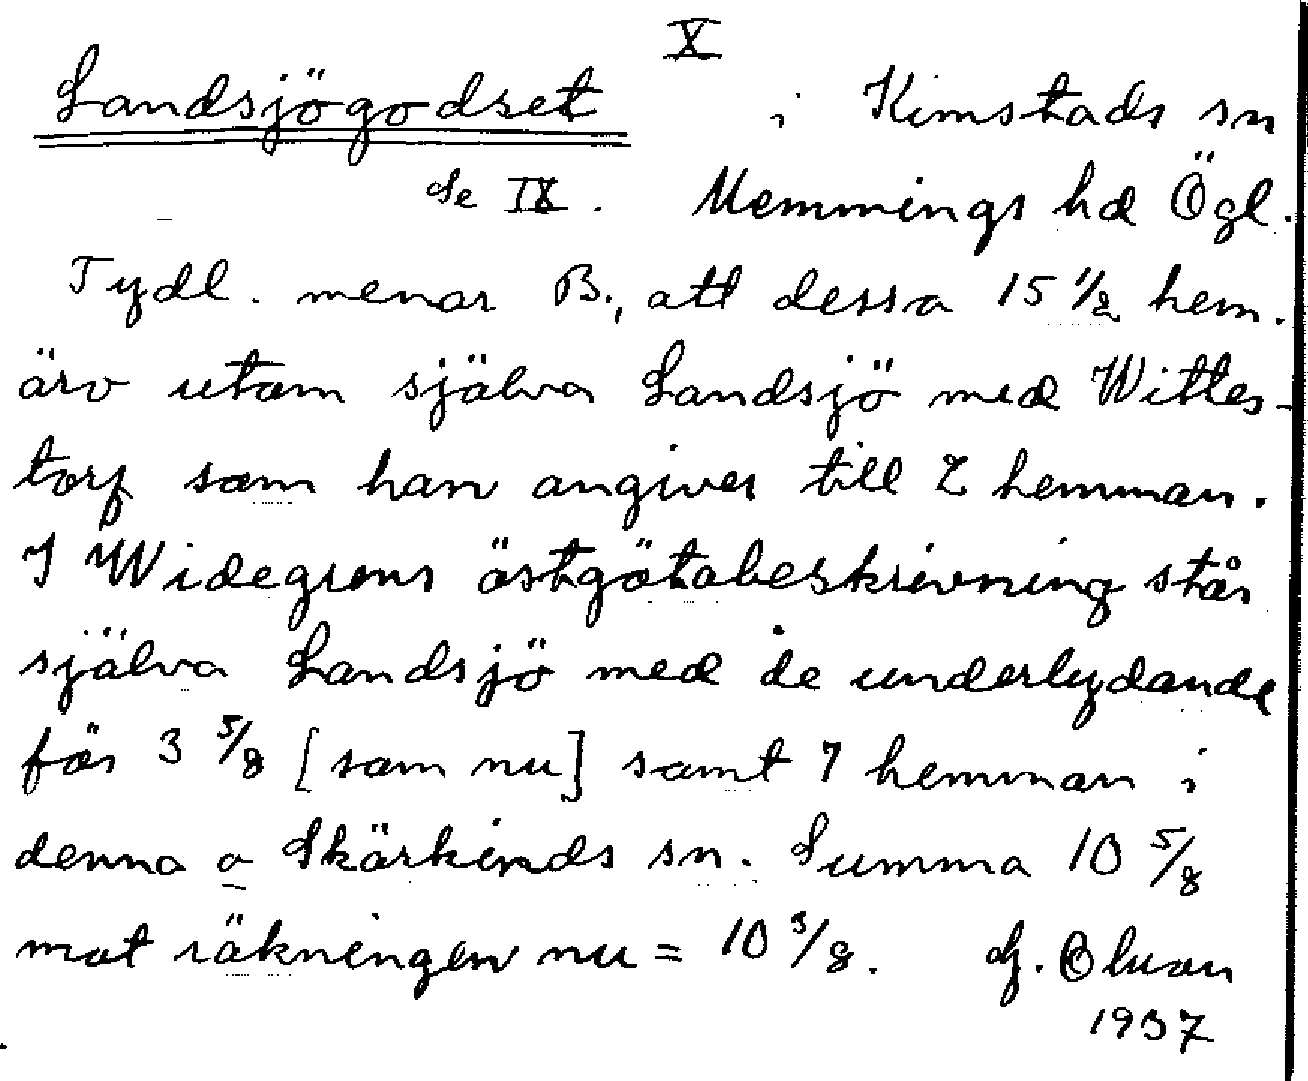 X
Landsjögodset i Kimstads sn
Se IX. Memmings hd Ögl.
Tydl. menar B., att dessa 15 1/2 hem.
äro utom själva Landsjö med Wittes-
torp som han angiver till 2 hemman.
I Widegrens östgötabeskrivning står
själva Landsjö med de underlydande
för 3 5/8 [som nu] samt 7 hemman i
denna o Skärkinds sn. Summa 10 5/8
mot räkningen nu = 10 3/8. G. Olsson
1937